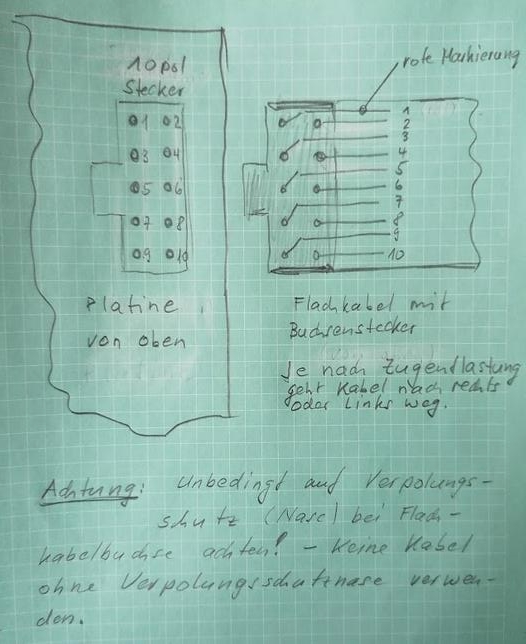 10pol
Stecker
1 2
3 4
5 6
7 8
9 10
Platine
von oben
rote Markierung
1
2
3
4
5
6
7
8
9
10
Flachkabel mit
Buchsenstecker
Je nach Zugentlastung
geht Kabel nach rechts
oder Links weg.
Achtung: Unbedingt auf Verpolungs-
schutz (Nase) bei Flach-
kabelbuchse achten! - Keine Kabel
ohne Verpolungsschutznase verwen-
den.